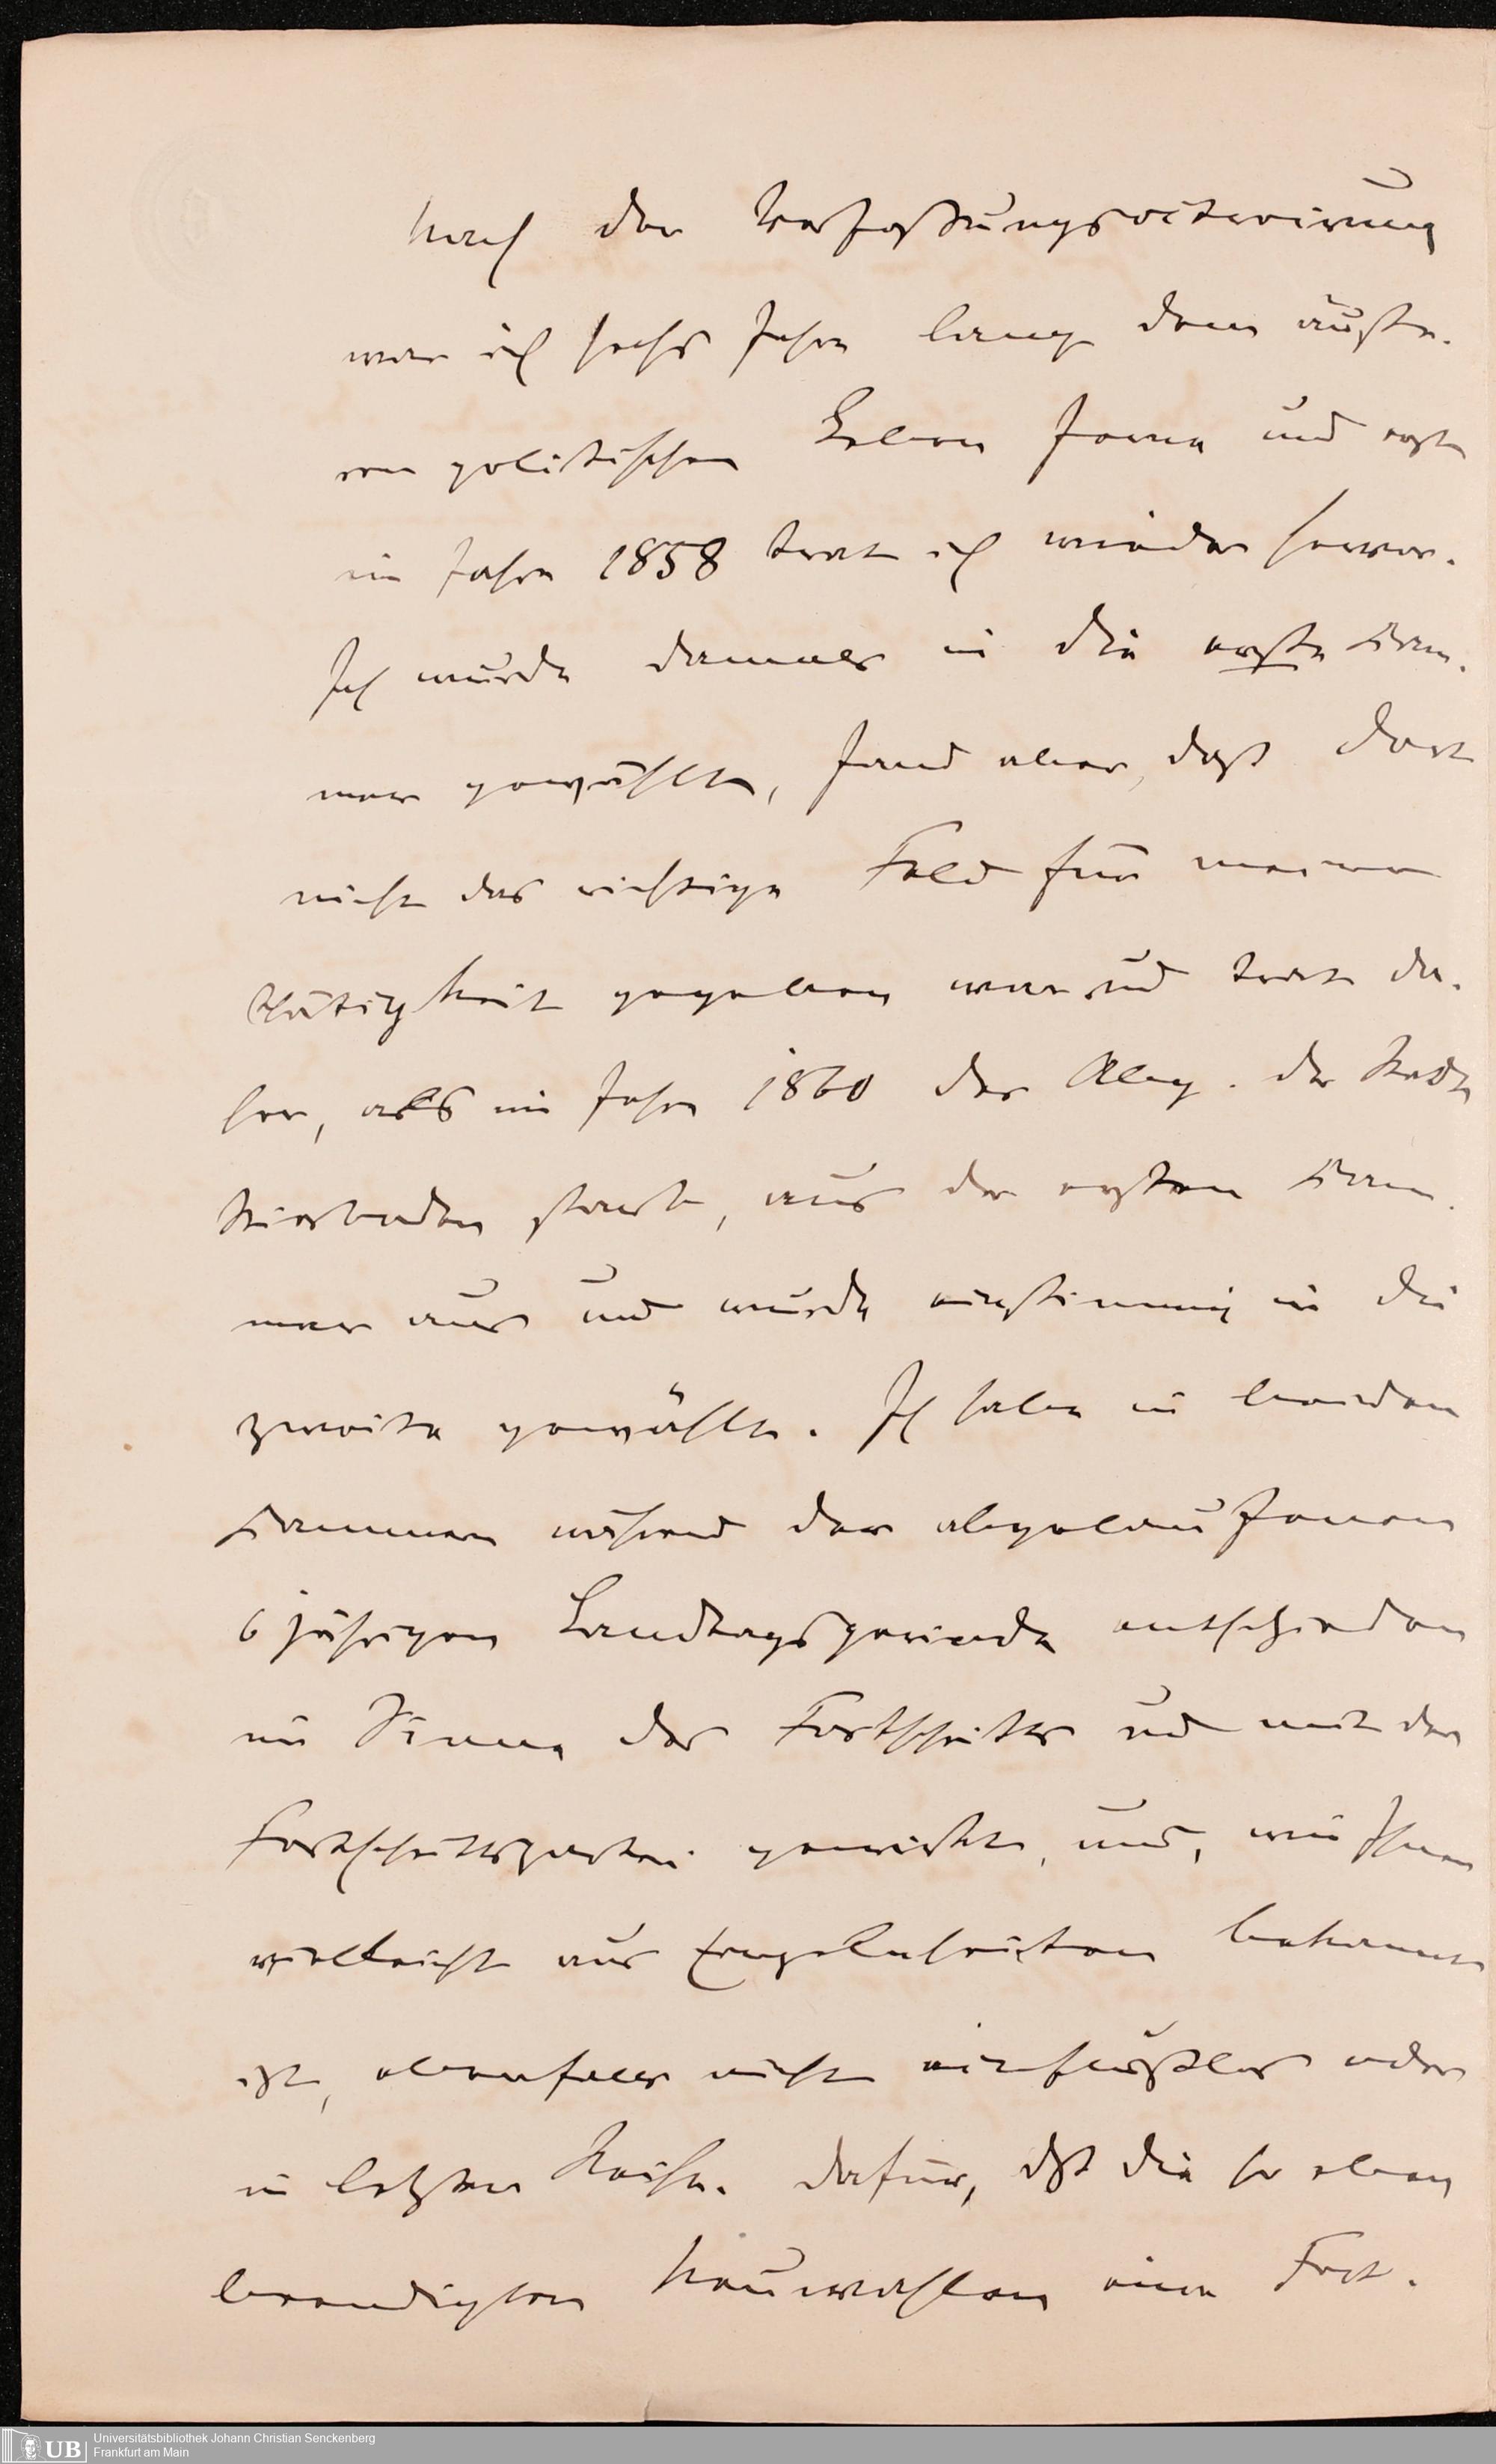 Nach der Verfassungsoctroirung
war ich sechs Jahre lang dem äuße-
ren politischen Leben ferne und erst
im Jahre 1858 trat ich wieder hervor.
Ich wurde damals in die erste Kam-
mer gewählt, fand aber, daß dort
nicht das richtige Feld für meine
Thätigkeit gegeben war und trat da-
her, als im Jahre 1860 der Abg. der Stadt
Wiesbaden starb, aus der ersten Kam-
mer aus und wurde einstimmig in die
zweite gewählt. Ich habe in beiden
Kammern während der abgelaufenen
6 jährigen Landtagsperiode entschieden
im Sinne des Fortschritts und mit der
Fortschrittspartei gewirkt, und, wie Ihnen
vielleicht aus bekannt
ist, ebenfalls nicht einflußlos oder
in letzter Reihe. Dafür, daß die so eben
beendigten Neuwahlen eine Fort-
Universitätsbibliothek Johann Christian Senckenberg
Frankfurt am Main
UB